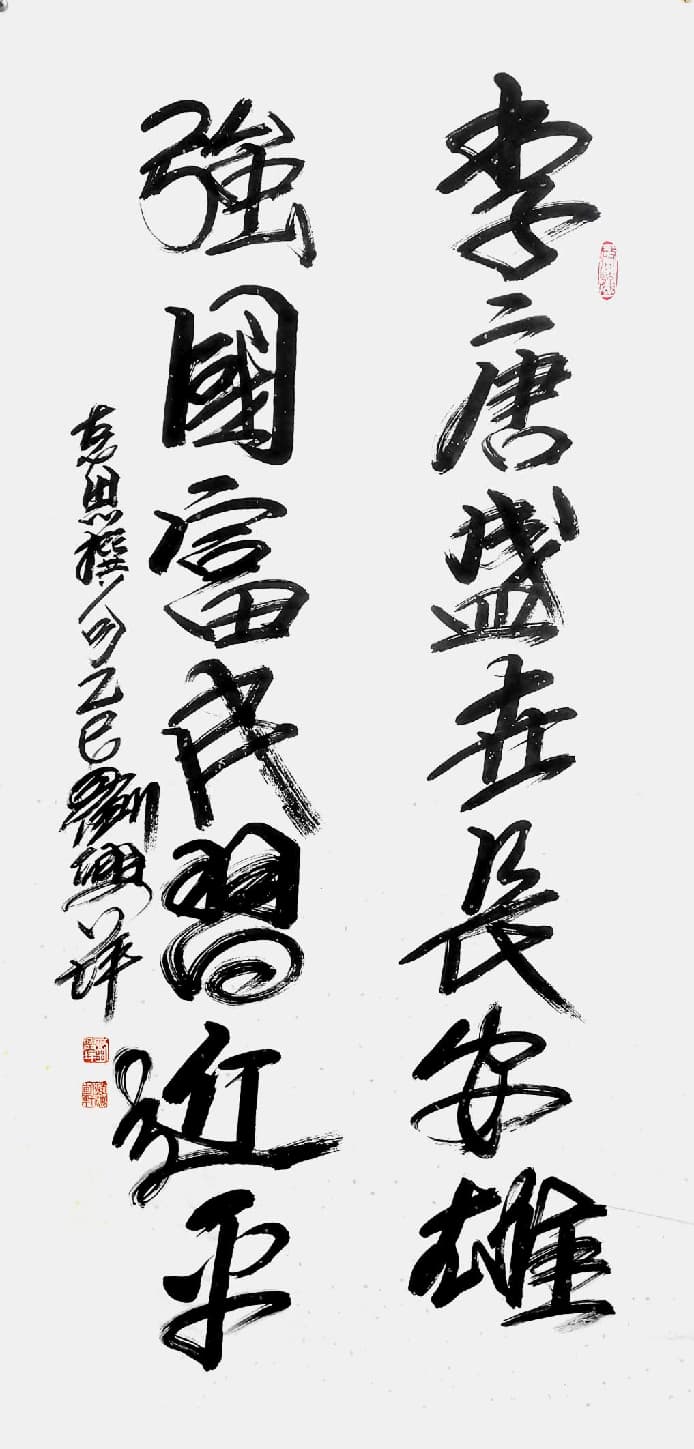 李唐盛世長安雄
強國富民習近平
思撰句乙巳劉興